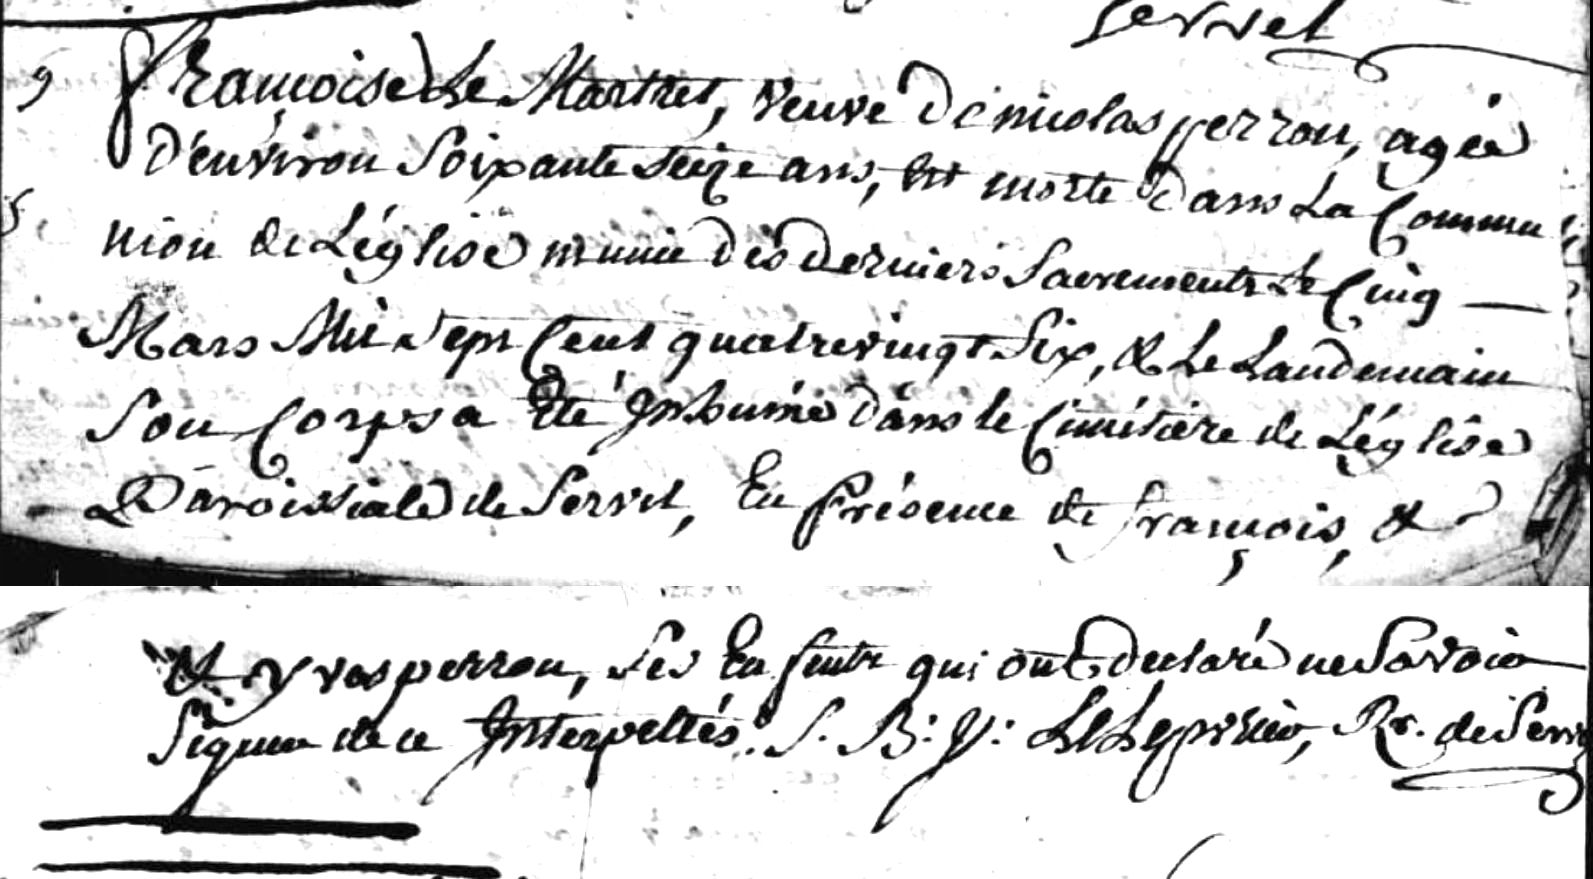 Servel
9 françoise Le Martret, veuve De nicolas perrou, agée
D'environ Soixante seize ans, Est morte Dans La Commu
nion de L'église munie des Derniers Sacrements Le Cinq
Mars Mil Sept Cent quatrevingt Six, & Le Landemain
Son Corps a Eté Inhumé Dans le Cimétière de L'église
Paroissiale de Servel, En Présence de françois, &
& yves perrou, Ses Enfents qui ont declaré ne Savoir
Signer de ce Interpellés. S. B: y: Rr. de Serv